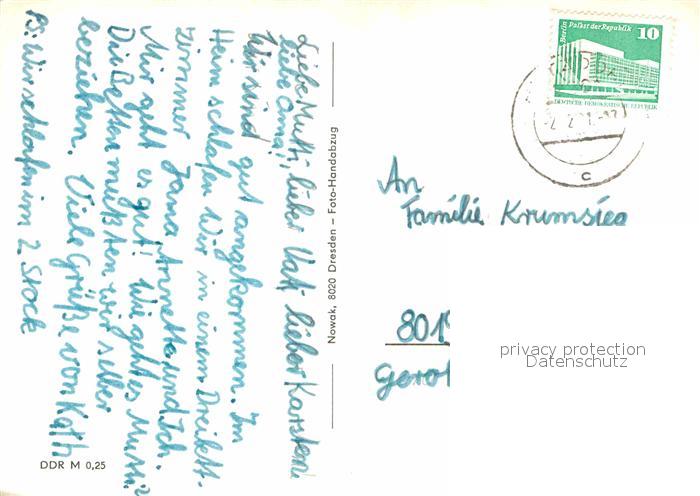 Liebe Mutti, lieber Vati lieber Karsten
liebe Oma!
Wir sind gut angekommen. Im
Heim schlafen Wir in einem Dreibett-
zimmer Jana Annetta und Ich.
Mir geht es gut! Wie geht es Mutti?
Die Betten mußten wir selber
beziehen. Viele Grüße von Kath
PS: Wir schlafen im 2. Stock
Nowak, 8020 Dresden – Foto-Handabzug
DDR M 0,25
Berlin Palast der Republik
10
DEUTSCHE DEMOKRATISCHE REPUBLIK
c
An
Familie Krumsieg
801
Gerok
privacy protection
Datenschutz